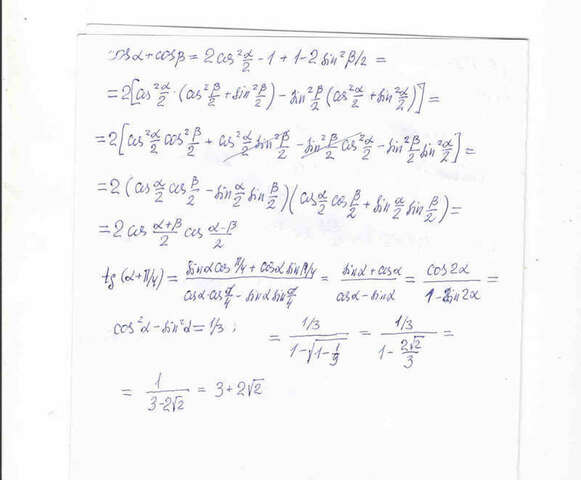 cosα + cosβ = 2cos²α/2 - 1 + 1 - 2sin²β/2 =
= 2[cos²α/2 · (cos²β/2 + sin²β/2) - sin²β/2 (cos²α/2 + sin²α/2)] =
= 2[cos²α/2 cos²β/2 + cos²α/2 sin²β/2 - sin²β/2 cos²α/2 - sin²β/2 sin²α/2] =
= 2(cos α/2 cos β/2 - sin α/2 sin β/2)(cos α/2 cos β/2 + sin α/2 sin β/2) =
= 2cos (α+β)/2 cos (α-β)/2
tg(α+π/4) = (sinα cos π/4 + cosα sin π/4)/(cosα·cos π/4 - sinα sin π/4) = (sinα + cosα)/(cosα - sinα) = cos2α/(1 - sin2α) =
cos²α - sin²α = 1/3 ; = (1/3)/(1 - √(1 - 1/9)) = (1/3)/(1 - 2√2/3) =
= 1/(3 - 2√2) = 3 + 2√2